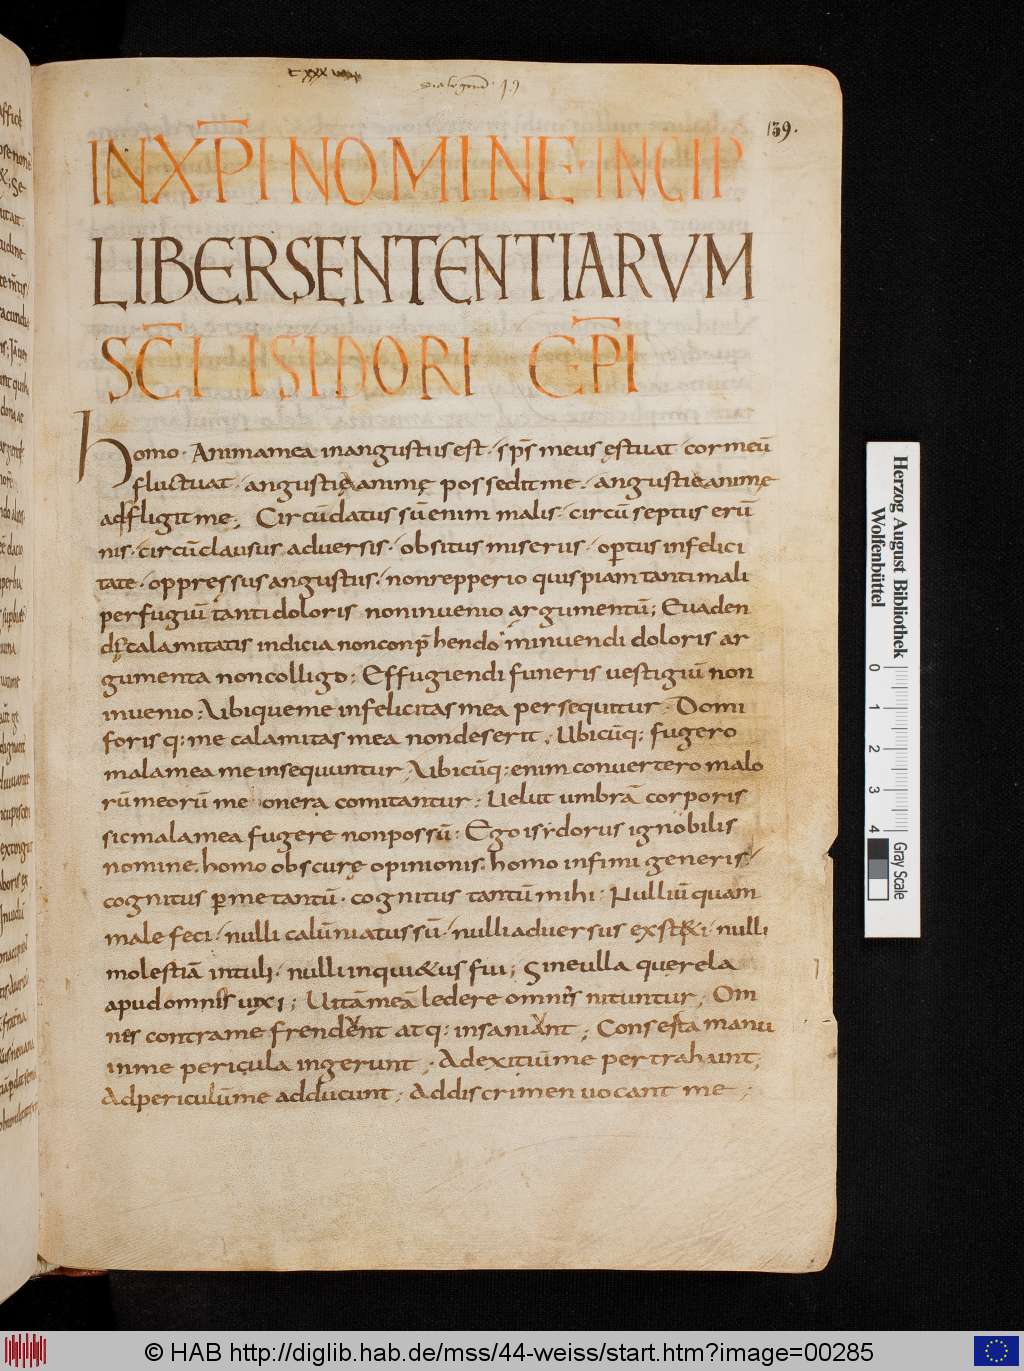 139.
IN XP̅I NOMINE INCIP
LIBER SENTENTIARVM
SC̅I ISIDORI EP̅I
homo · Anima mea in angustiis est · sp̅s meus ęstuat · cor meu̅
fluctuat · angustię animę possedit me · angustię animę
adfligit me ; Circu̅datus su̅ enim malis · circu̅septus eru̅
nis · circu̅clausus aduersis · obsitus miseriis · op̲tus infelici
tate · oppręssus angustiis · non repperio quispiam tanti mali
perfugiu̅ tanti doloris non inuenio argumentu̅ ; Euaden
dę calamitatis indicia non conp̅hendo minuendi doloris ar
gumenta non colligo ; Effugiendi funeris uestigiu̅ non
inuenio ; Ubique me infelicitas mea persequitur · Domi
foris q: me calamitas mea non deserit ; Ubicu̅q: fugero
mala mea me insequuntur, Ubicu̅q: enim conuertero malo
ru̅ meoru̅ me onera comitantur ; Uelut umbra̅ corporis
sic mala mea fugere non possu̅ ; Ego isydorus ignobilis
nomine. homo obscurę opinionis. homo infimi generis
cognitus p̲ me tantu̅ · cognitus tantu̅ mihi ; Nulliu̅ quam
male feci · nulli calu̅niatus su̅ · nulli aduersus exstiti · nulli
molestia̅ intuli · nulli inqui&us fui ; Sine ulla querela
apud omnis uixi ; Uita̅ mea̅ ledere omnis nituntur ; Om
nes contra me frendent atq: insaniant ; Conserta manu
in me pericula ingerunt ; Ad exitiu̅ me pertrahunt ;
Ad periculu̅ me adducunt ; Ad discrimen uocant me ;
Herzog August Bibliothek
Wolfenbüttel
0 1 2 3 4
Gray Scale
© HAB http://diglib.hab.de/mss/44-weiss/start.htm?image=00285